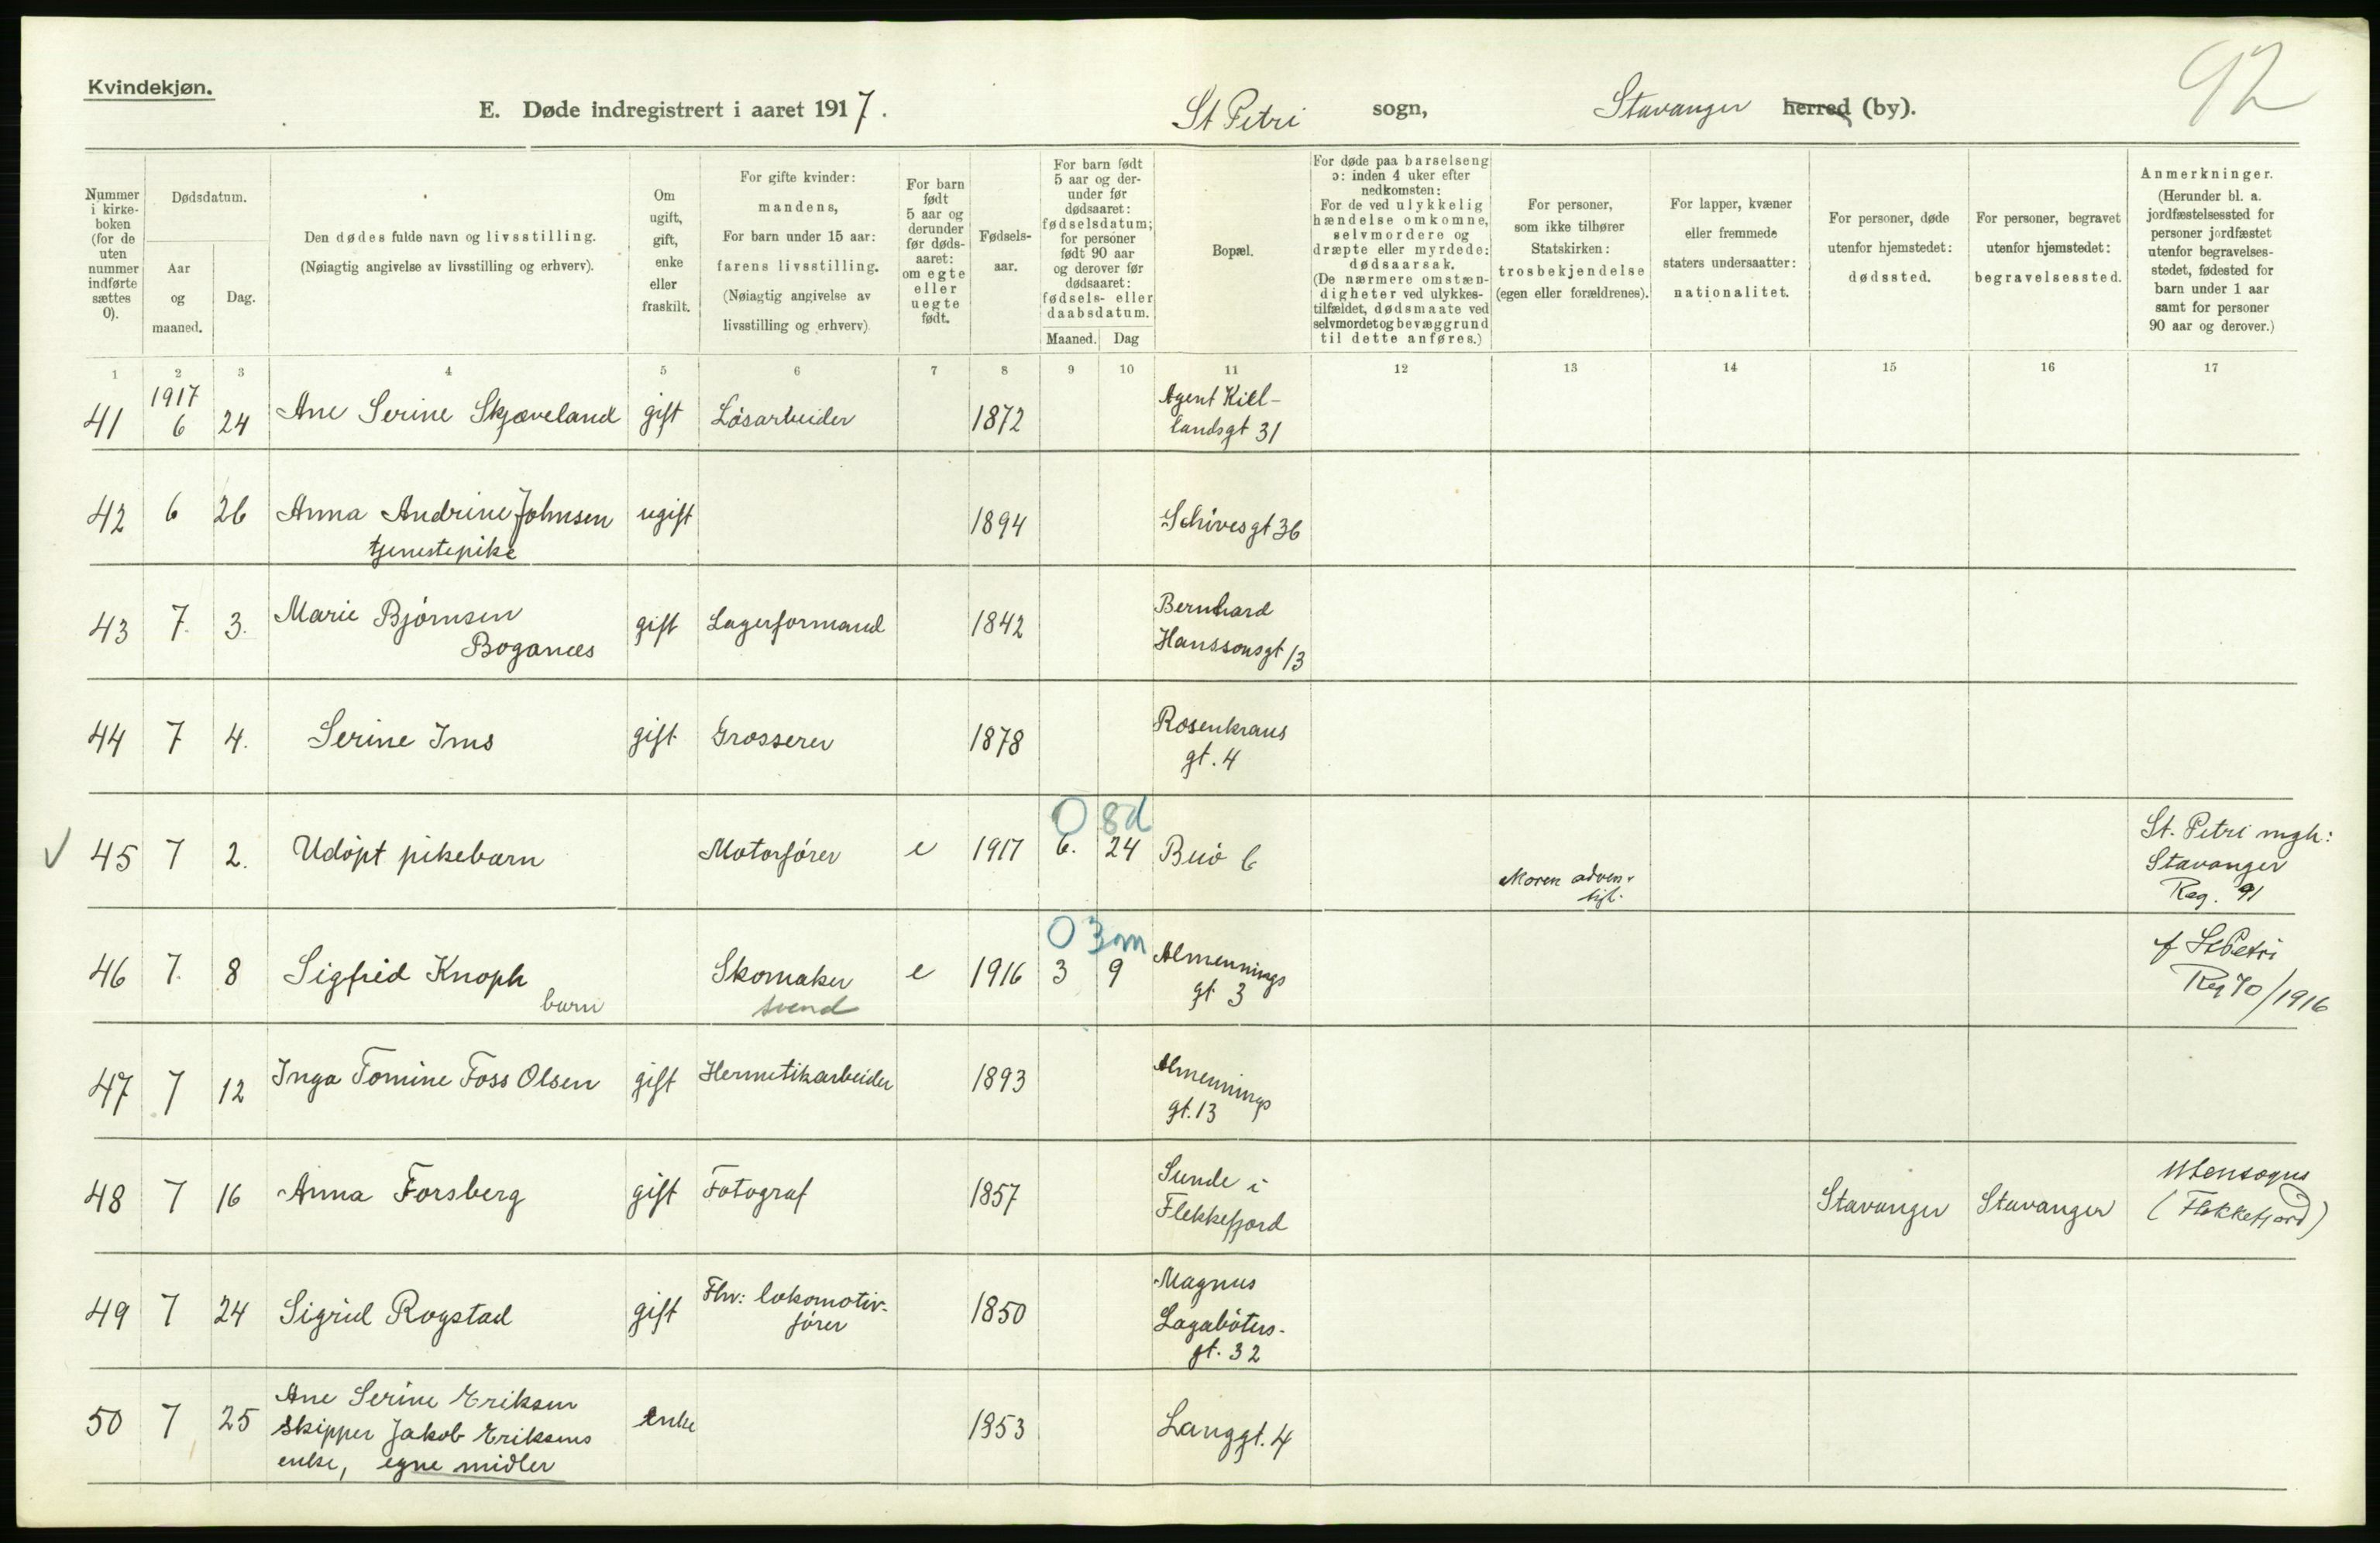 Kvindekjøn.
E. Døde indregistrert i aaret 1917.
St Petri sogn,
Stavanger herred (by).
92
Nummer i kirkeboken (for de uten nummer indførte sættes 0).
Dødsdatum.
Aar og maaned.
Dag.
Den dødes fulde navn og livsstilling.
(Nøiagtig angivelse av livsstilling og erhverv).
Om ugift, gift, enke eller fraskilt.
For gifte kvinder: mandens,
For barn under 15 aar: farens livsstilling.
(Nøiagtig angivelse av livsstilling og erhverv)
For barn født 5 aar og derunder før dødsaaret: om egte eller uegte født.
Fødselsaar.
For barn født 5 aar og derunder før dødsaaret: fødselsdatum; for personer født 90 aar og derover før dødsaaret: fødsels- eller daabsdatum.
Maaned. Dag
Bopæl.
For døde paa barselseng ɔ: inden 4 uker efter nedkomsten:
For de ved ulykkelig hændelse omkomne, selvmordere og dræpte eller myrdede: dødsaarsak.
(De nærmere omstændigheter ved ulykkestilfældet, dødsmaate ved selvmordet og bevæggrund til dette anføres.)
For personer, som ikke tilhører Statskirken: trosbekjendelse (egen eller forældrenes).
For lapper, kvæner eller fremmede staters undersaatter: nationalitet.
For personer, døde utenfor hjemstedet: dødssted.
For personer, begravet utenfor hjemstedet: begravelsessted.
Anmerkninger.
(Herunder bl. a. jordfæstelsessted for personer jordfæstet utenfor begravelsesstedet, fødested for barn under 1 aar samt for personer 90 aar og derover.)
1 2 3 4 5 6 7 8 9 10 11 12 13 14 15 16 17
1917
41 6 24 Ane Serine Skjæveland gift Løsarbeider 1872 Agent Kiel-
landsgt 31
42 6 26 Anna Andrine Johnsen ugift 1894 Schivesgt 36
tjenestepike
43 7. 3. Marie Bjørnsen gift Lagerformand 1842 Bernhard
Boganæs Hanssonsgt 13
44 7 4. Serine Ims gift Grosserer 1878 Rosenkrans
gt. 4
0 8d
45 7 2. Udøpt pikebarn Motorfører e 1917 6. 24 Buø 6 Moren adven-
tist. St. Petri mgh:
Stavanger
Reg. 91
0 3m
46 7. 8 Sigfrid Knoph Skomaker e 1916 3 9 Almennings
gt 3
barn svend f St Petri
Reg 70/1916
47 7 12 Inga Tomine Foss Olsen gift Hermetikarbeider 1893 Almennings
gt. 13
48 7 16 Anna Forsberg gift Fotograf 1857 Sunde i
Flekkefjord Stavanger Stavanger Utensogns
(Flekkefjord)
49 7 24 Sigrid Rogstad gift Fhv: lokomotiv-
fører 1850 Magnus
Lagabøters-
gt. 32
50 7 25 Ane Serine Eriksen enke 1853 Langgt. 4
Skipper Jakob Eriksens
enke, egne midler